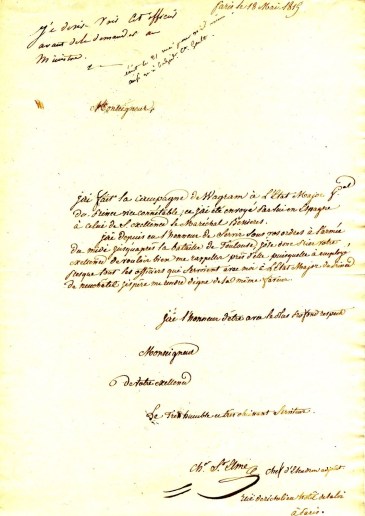 Paris le 18 Mai 1815
je désire voir cet officier
avant de le demander au
Ministre
Monseigneur,
j'ai fait la campagne de Wagram à L'Etat Major gal
du Prince vice connétable, et j'ai été envoyé par lui en Espagne
à celui de S. excellence le Maréchal Bessieres.
j'ai depuis eu l'honneur de servir sous vos ordres à l'armée
du midi jusqu'après la bataille de Toulouse, j'ose donc prier votre
excellence de vouloir bien me rappeller près d'elle, puisqu'elle a employé
presque tous les officiers qui servoient avec moi à L'Etat Major du Prince
de neuchatel j'espère me rendre digne de la même faveur
j'ai l'honneur d'être avec le plus profond respect
Monseigneur
de Votre excellence
Le très humble et très obéissant Serviteur
Chr. St. Elme
chef d'Escadron adjoint
rue de richelieu hotel de
à Paris.